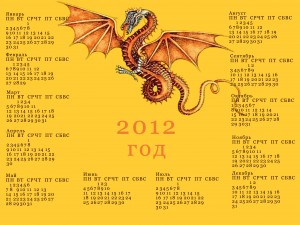 Январь
ПН ВТ СРЧТ ПТ СБВС
1
2 3 4 5 6 7 8
9 10 11 12 13 14 15
16 17 18 19 20 21 22
23 24 25 26 27 28 29
30 31
Февраль
ПН ВТ СРЧТ ПТ СБВС
1 2 3 4 5
6 7 8 9 10 11 12
13 14 15 16 17 18 19
20 21 22 23 24 25 26
27 28 29
Март
ПН ВТ СРЧТ ПТ СБВС
1 2 3 4
5 6 7 8 9 10 11
12 13 14 15 16 17 18
19 20 21 22 23 24 25
26 27 28 29 30 31
Апрель
ПН ВТ СРЧТ ПТ СБВС
1
2 3 4 5 6 7 8
9 10 11 12 13 14 15
16 17 18 19 20 21 22
23 24 25 26 27 28 29
30
Май
ПН ВТ СРЧТ ПТ СБВС
1 2 3 4 5 6
7 8 9 10 11 12 13
14 15 16 17 18 19 20
21 22 23 24 25 26 27
28 29 30 31
2012
год
Июнь
ПН ВТ СРЧТ ПТ СБВС
1 2 3
4 5 6 7 8 9 10
11 12 13 14 15 16 17
18 19 20 21 22 23 24
25 26 27 28 29 30
Июль
ПН ВТ СРЧТ ПТ СБВС
1
2 3 4 5 6 7 8
9 10 11 12 13 14 15
16 17 18 19 20 21 22
23 24 25 26 27 28 29
30 31
Август
ПН ВТ СРЧТ ПТ СБВС
1 2 3 4 5
6 7 8 9 10 11 12
13 14 15 16 17 18 19
20 21 22 23 24 25 26
27 28 29 30 31
Сентябрь
ПН ВТ СРЧТ ПТ СБВС
1 2
3 4 5 6 7 8 9
10 11 12 13 14 15 16
17 18 19 20 21 22 23
24 25 26 27 28 29 30
Октябрь
ПН ВТ СРЧТ ПТ СБВС
1 2 3 4 5 6 7
8 9 10 11 12 13 14
15 16 17 18 19 20 21
22 23 24 25 26 27 28
29 30 31
Ноябрь
ПН ВТ СРЧТ ПТ СБВС
1 2 3 4
5 6 7 8 9 10 11
12 13 14 15 16 17 18
19 20 21 22 23 24 25
26 27 28 29 30
Декабрь
ПН ВТ СРЧТ ПТ СБВС
1 2
3 4 5 6 7 8 9
10 11 12 13 14 15 16
17 18 19 20 21 22 23
24 25 26 27 28 29 30
31